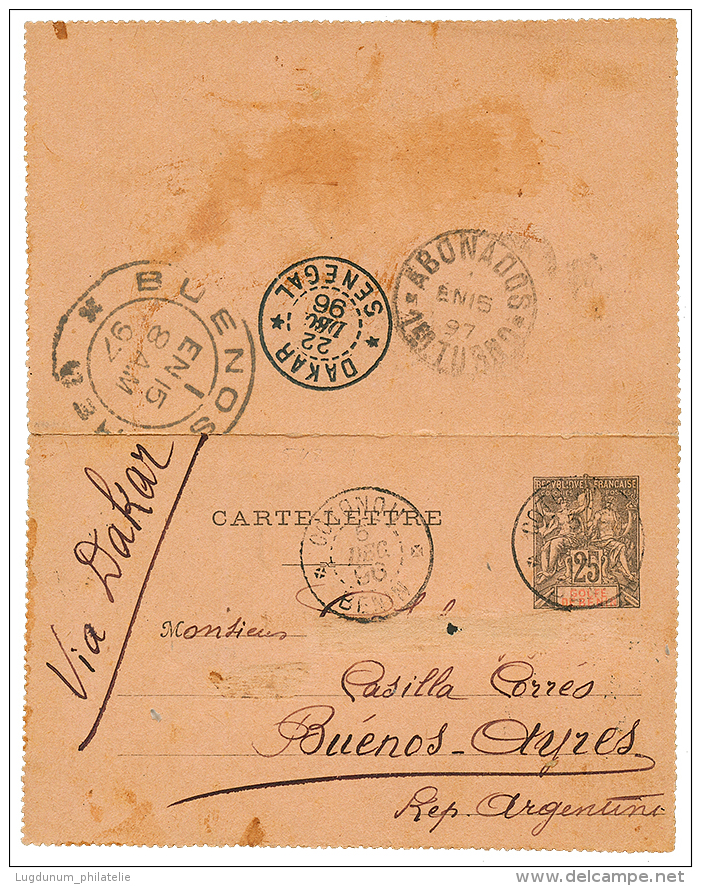 BUENOS
EN 15
8 AM
97
DAKAR
22
DEC
96
SENEGAL
ABONADOS
EN 15
97
Via Dakar
CARTE-LETTRE
6
DEC
96
BENIN
REPUBLIQUE FRANCAISE
25
GOLFE
DE BENIN
Monsieur
Casilla Corréo
Buénos-Ayres
Rép. Argentine
Lugdunum_philatelie
delcampe.net